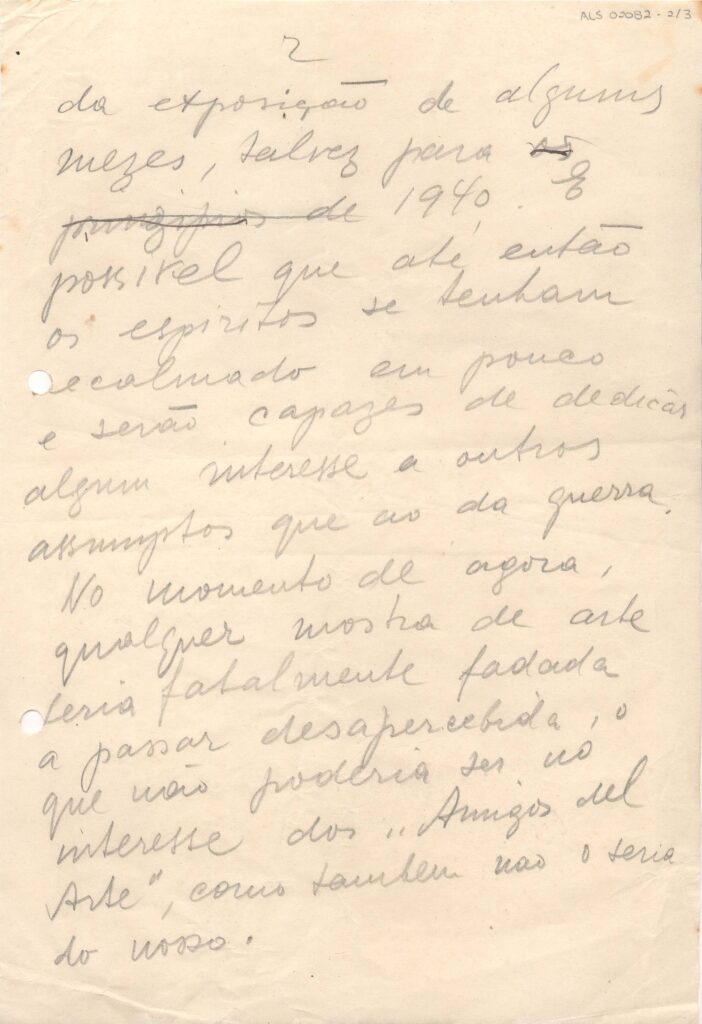 ALS 02082 - 2/3
2
da exposição de alguns
mezes, talvez para os
principios de 1940. É
possivel que até então
os espiritos se tenham
recalmado um pouco
e serão capazes de dedicar
algum interesse a outros
assumptos que ao da guerra.
No momento de agora,
qualquer mostra de arte
seria fatalmente fadada
a passar desapercebida, o
que não poderia ser no
interesse dos „Amigos del
Arte", como tambem nao o seria
do nosso.